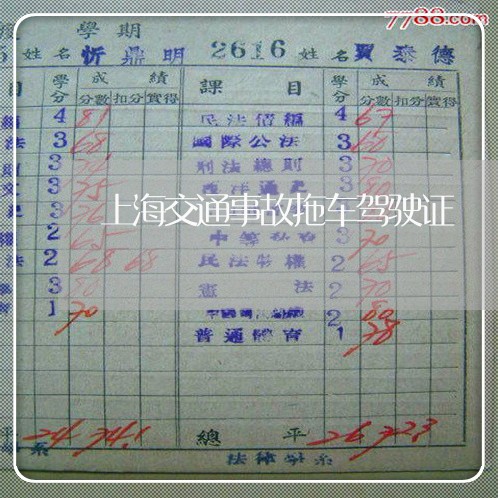 7788.com
學期
姓名 忻鼎明 2616 姓名 賈泰德
目 學分 成績 課目 學分 成績
分數 扣分 實得 分數 扣分 實得
4 81 民法債編 4 67
法 3 68 國際公法 3 60
3 刑法總則 3 70
3 75 西洋通史 3 80
上海交通事故拖车驾驶证
2 65 3 70
法 2 68 68 民法物權 2 65
3 80 憲法 2 70
1 70 2 80
普通體育 1 78
平 24 74.1 總平 26 72.3
系 法律學系